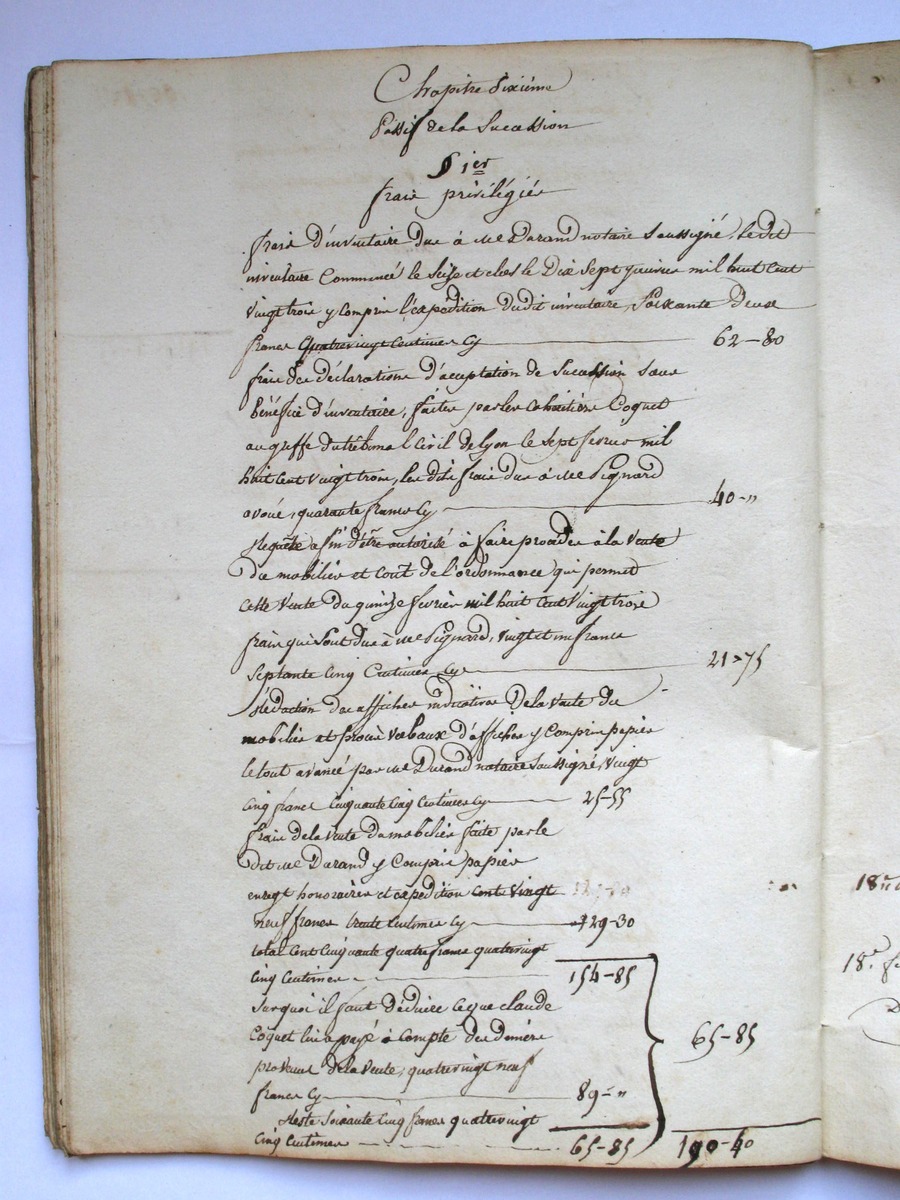 Chapitre Sixiéme
Passif de la Succession
§ 1er
frais privilégiés
frais D'inventaire dus à Me Durand notaire Soussigné, Ledit
inventaire Commencé le Seize et clos le Dix Sept Janvier mil huit Cent
vingt trois y Compris l'expédition Dudit inventaire, Soixante Deux
francs Quatrevingt Centimes Cy 62-80
frais Des Déclarations D'acceptation de Succession Sous
bénéfice d'inventaire, faites par les Cohéritiers Coquet
au greffe du tribunal Civil de Lyon le Sept fevrier mil
huit Cent vingt trois, les dits frais dus à Me Pignard
avoué, quarante francs Cy 40-"
Requête afin d'être autorisé à faire procéder à la Vente
Du mobilier et Cout de l'ordonnance qui permet
Cette Vente Du quinze février mil huit Cent Vingt trois
frais qui Sont dus à Me Pignard, Vingt et un francs
Septante Cinq Centimes Cy 21-75
Rédaction des affiches indicatives De la Vente du
mobilier et procès verbaux D'affiches y Compris papier
le tout avancé par Me Durand notaire Soussigné, Vingt
Cinq francs Cinquante Cinq Centimes Cy 25-55
frais de la Vente Du mobilier faite par le
Dit Me Durand y Compris papier
enregt honoraires et expédition Cent Vingt
neuf francs trente Centimes Cy 129-30
total Cent Cinquante quatre francs quatrevingt
Cinq Centimes 154-85
Sur quoi il faut Déduire Ce que Claude
Coquet lui a payé à Compte des Deniers
provenus De la Vente, quatrevingt neuf
francs Cy 89-"
Reste Soixante Cinq francs quatrevingt
Cinq Centimes 65-85
65-85
190-40